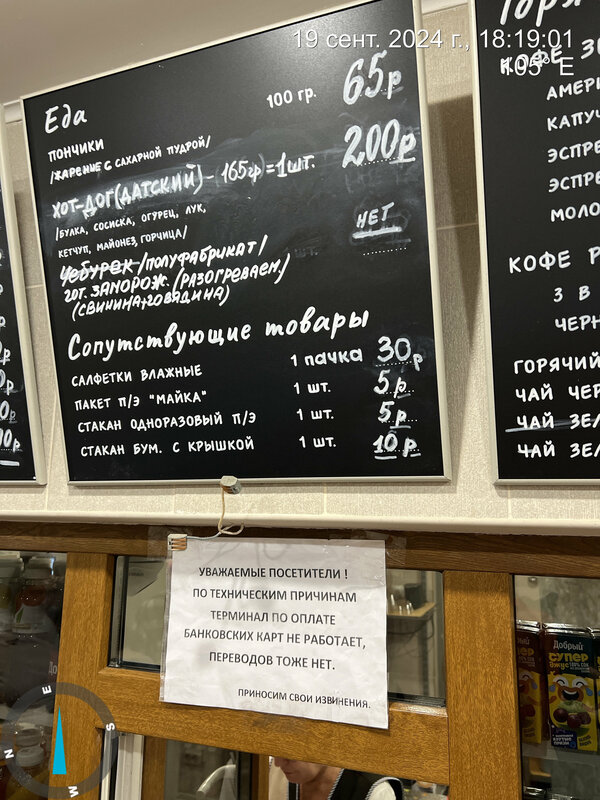 19 сент. 2024 г., 18:19:01
105° E
Еда
ПОНЧИКИ 100 гр. 65р
/ЖАРЕНИЕ С САХАРНОЙ ПУДРОЙ/
ХОТ-ДОГ(ДАТСКИЙ) - 165гр)=1шт. 200р
/БУЛКА, СОСИСКА, ОГУРЕЦ, ЛУК,
КЕТЧУП, МАЙОНЕЗ, ГОРЧИЦА/
Чебурек/ПОЛУФАБРИКАТ/ НЕТ
ГОТ. ЗАМОРОЖ. (РАЗОГРЕВАЕМ/
(СВИНИНА+ГОВЯДИНА)
Сопутствующие товары
САЛФЕТКИ ВЛАЖНЫЕ 1 пачка 30р
ПАКЕТ П/Э "МАЙКА" 1 шт. 5р
СТАКАН ОДНОРАЗОВЫЙ П/Э 1 шт. 5р
СТАКАН БУМ. С КРЫШКОЙ 1 шт. 10р
Горя
КОФЕ З
АМЕРИ
КАПУЧ
ЭСПРЕ
ЭСПРЕ
МОЛО
КОФЕ Р
3 В
ЧЕРН
ГОРЯЧИЙ
ЧАЙ ЧЕР
ЧАЙ ЗЕЛ
ЧАЙ ЗЕЛ
УВАЖАЕМЫЕ ПОСЕТИТЕЛИ !
ПО ТЕХНИЧЕСКИМ ПРИЧИНАМ
ТЕРМИНАЛ ПО ОПЛАТЕ
БАНКОВСКИХ КАРТ НЕ РАБОТАЕТ,
ПЕРЕВОДОВ ТОЖЕ НЕТ.
ПРИНОСИМ СВОИ ИЗВИНЕНИЯ.
Добрый
СУПЕР
N
E
S
W